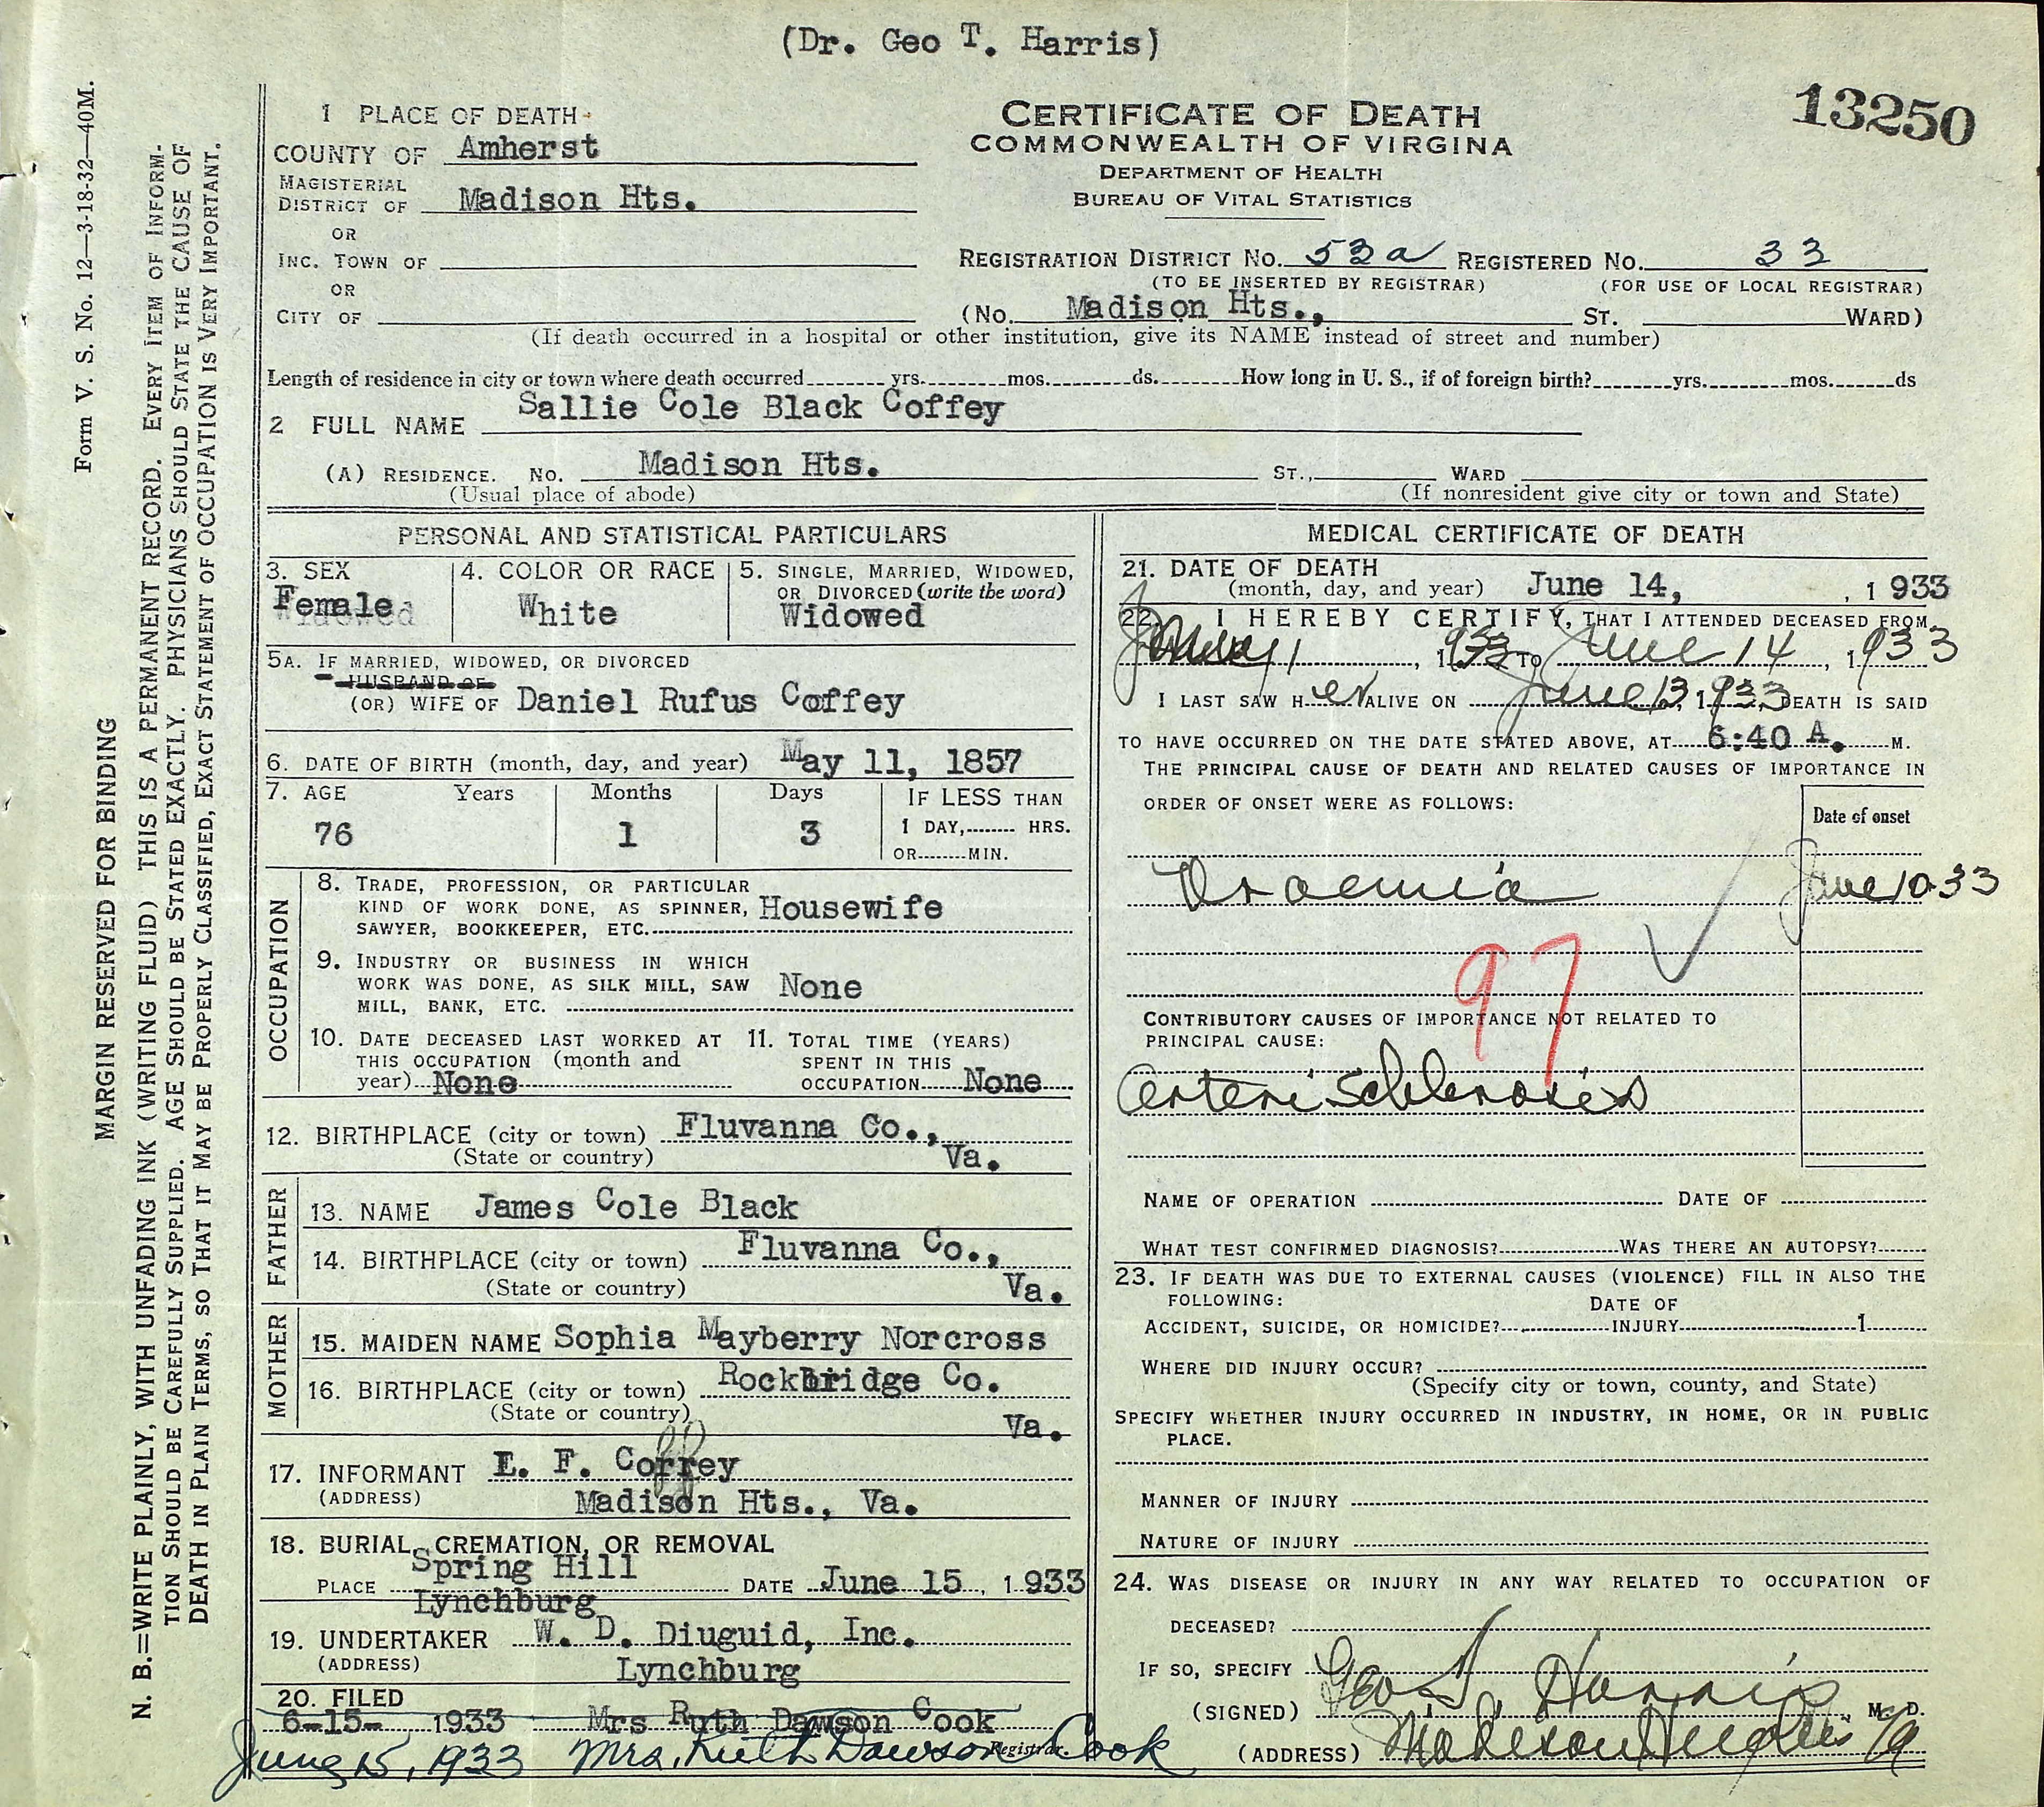 (Dr. Geo T. Harris)
13250
Form V. S. No. 12—3-18-32—40M.
MARGIN RESERVED FOR BINDING
N. B.=WRITE PLAINLY, WITH UNFADING INK (WRITING FLUID) THIS IS A PERMANENT RECORD. EVERY ITEM OF INFORM-
TION SHOULD BE CAREFULLY SUPPLIED. AGE SHOULD BE STATED EXACTLY. PHYSICIANS SHOULD STATE THE CAUSE OF
DEATH IN PLAIN TERMS, SO THAT IT MAY BE PROPERLY CLASSIFIED, EXACT STATEMENT OF OCCUPATION IS VERY IMPORTANT.
1 PLACE OF DEATH
COUNTY OF Amherst
MAGISTERIAL
DISTRICT OF Madison Hts.
OR
INC. TOWN OF
OR
CITY OF
CERTIFICATE OF DEATH
COMMONWEALTH OF VIRGINA
DEPARTMENT OF HEALTH
BUREAU OF VITAL STATISTICS
REGISTRATION DISTRICT NO. 53a REGISTERED NO. 33
(TO BE INSERTED BY REGISTRAR) (FOR USE OF LOCAL REGISTRAR)
(NO. Madison Hts., ST. WARD)
(If death occurred in a hospital or other institution, give its NAME instead of street and number)
Length of residence in city or town where death occurred yrs. mos. ds. How long in U. S., if of foreign birth? yrs. mos. ds
2 FULL NAME Sallie Cole Black Coffey
(A) RESIDENCE. NO. Madison Hts. ST., WARD
(Usual place of abode) (If nonresident give city or town and State)
PERSONAL AND STATISTICAL PARTICULARS
3. SEX 4. COLOR OR RACE 5. SINGLE, MARRIED, WIDOWED,
OR DIVORCED (write the word)
Female White Widowed
5A. IF MARRIED, WIDOWED, OR DIVORCED
HUSBAND OF
(OR) WIFE OF Daniel Rufus Coffey
6. DATE OF BIRTH (month, day, and year) May 11, 1857
7. AGE Years Months Days IF LESS THAN
76 1 3 1 DAY, HRS.
OR MIN.
OCCUPATION
8. TRADE, PROFESSION, OR PARTICULAR
KIND OF WORK DONE, AS SPINNER, Housewife
SAWYER, BOOKKEEPER, ETC.
9. INDUSTRY OR BUSINESS IN WHICH
WORK WAS DONE, AS SILK MILL, SAW None
MILL, BANK, ETC.
10. DATE DECEASED LAST WORKED AT 11. TOTAL TIME (YEARS)
THIS OCCUPATION (month and SPENT IN THIS
year) None OCCUPATION None
12. BIRTHPLACE (city or town) Fluvanna Co.,
(State or country) Va.
FATHER
13. NAME James Cole Black
14. BIRTHPLACE (city or town) Fluvanna Co.,
(State or country) Va.
MOTHER
15. MAIDEN NAME Sophia Mayberry Norcross
16. BIRTHPLACE (city or town) Rockbridge Co.
(State or country) Va.
17. INFORMANT E. F. Coffey
(ADDRESS) Madison Hts., Va.
18. BURIAL, CREMATION, OR REMOVAL
PLACE Spring Hill DATE June 15, 1933
Lynchburg
19. UNDERTAKER W. D. Diuguid, Inc.
(ADDRESS) Lynchburg
20. FILED
6-15- 1933 Mrs Ruth Dawson Cook
June 15, 1933 Mrs. Ruth Dawson Cook
Registrar
MEDICAL CERTIFICATE OF DEATH
21. DATE OF DEATH
(month, day, and year) June 14, , 1933
22. I HEREBY CERTIFY, THAT I ATTENDED DECEASED FROM
1, 1933 TO June 14, 1933
I LAST SAW HER ALIVE ON June 13, 1933 DEATH IS SAID
TO HAVE OCCURRED ON THE DATE STATED ABOVE, AT 6:40 A. M.
THE PRINCIPAL CAUSE OF DEATH AND RELATED CAUSES OF IMPORTANCE IN
ORDER OF ONSET WERE AS FOLLOWS:
Date of onset
Uraemia June 10-33
97
CONTRIBUTORY CAUSES OF IMPORTANCE NOT RELATED TO
PRINCIPAL CAUSE:
Arteri Schlerosis
NAME OF OPERATION DATE OF
WHAT TEST CONFIRMED DIAGNOSIS? WAS THERE AN AUTOPSY?
23. IF DEATH WAS DUE TO EXTERNAL CAUSES (VIOLENCE) FILL IN ALSO THE
FOLLOWING: DATE OF
ACCIDENT, SUICIDE, OR HOMICIDE? INJURY 1
WHERE DID INJURY OCCUR?
(Specify city or town, county, and State)
SPECIFY WHETHER INJURY OCCURRED IN INDUSTRY, IN HOME, OR IN PUBLIC
PLACE.
MANNER OF INJURY
NATURE OF INJURY
24. WAS DISEASE OR INJURY IN ANY WAY RELATED TO OCCUPATION OF
DECEASED?
IF SO, SPECIFY
(SIGNED) Geo T. Harris M. D.
(ADDRESS) Madison Heights Va